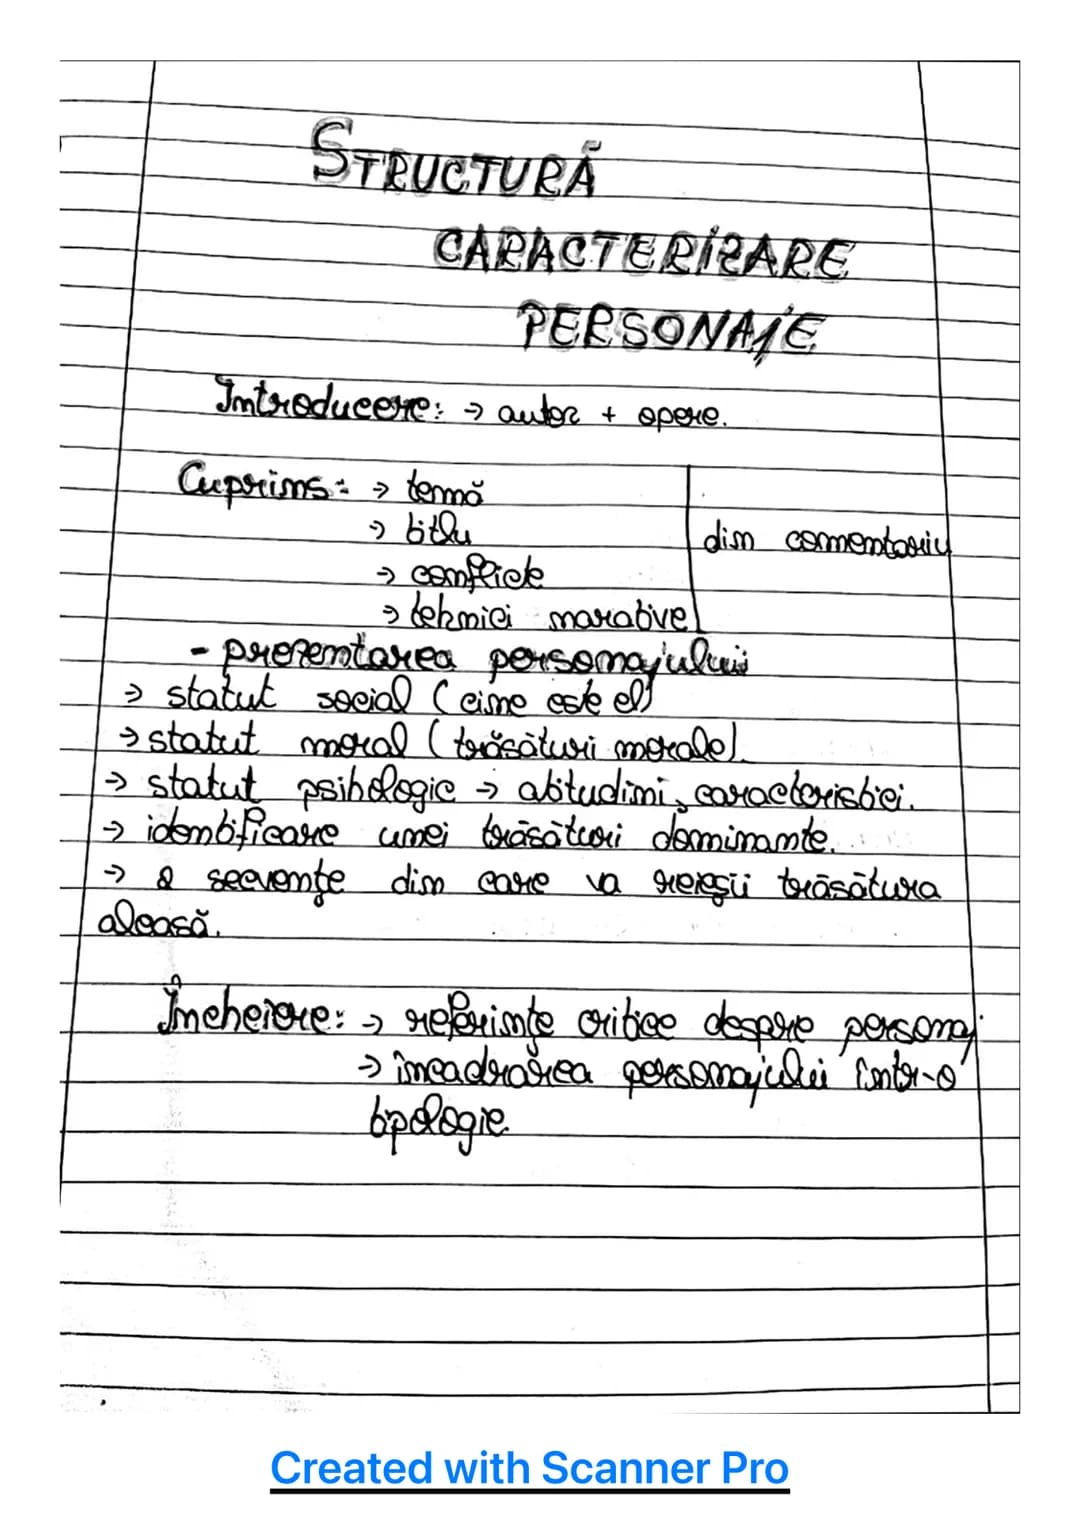 STRUCTURĂ
CARACTERIZARE
PERSONAJE
Introducere: → autor + opere.
Cuprins: → temă
→ titlu
→ conflicte
→ tehnici narative
din comentariu
- prezentarea personajului
→ statut social (cine este el)
→ statut moral (trăsături morale).
→ statut psihologic → atitudini, caracteristici.
→ identificare unei trăsături dominante.
→ 2 secvențe din care va reieșii trăsătura
aleasă.
Încheiere: → referințe critice despre personaj
→ încadrarea personajului într-o
tipologie
Created with Scanner Pro